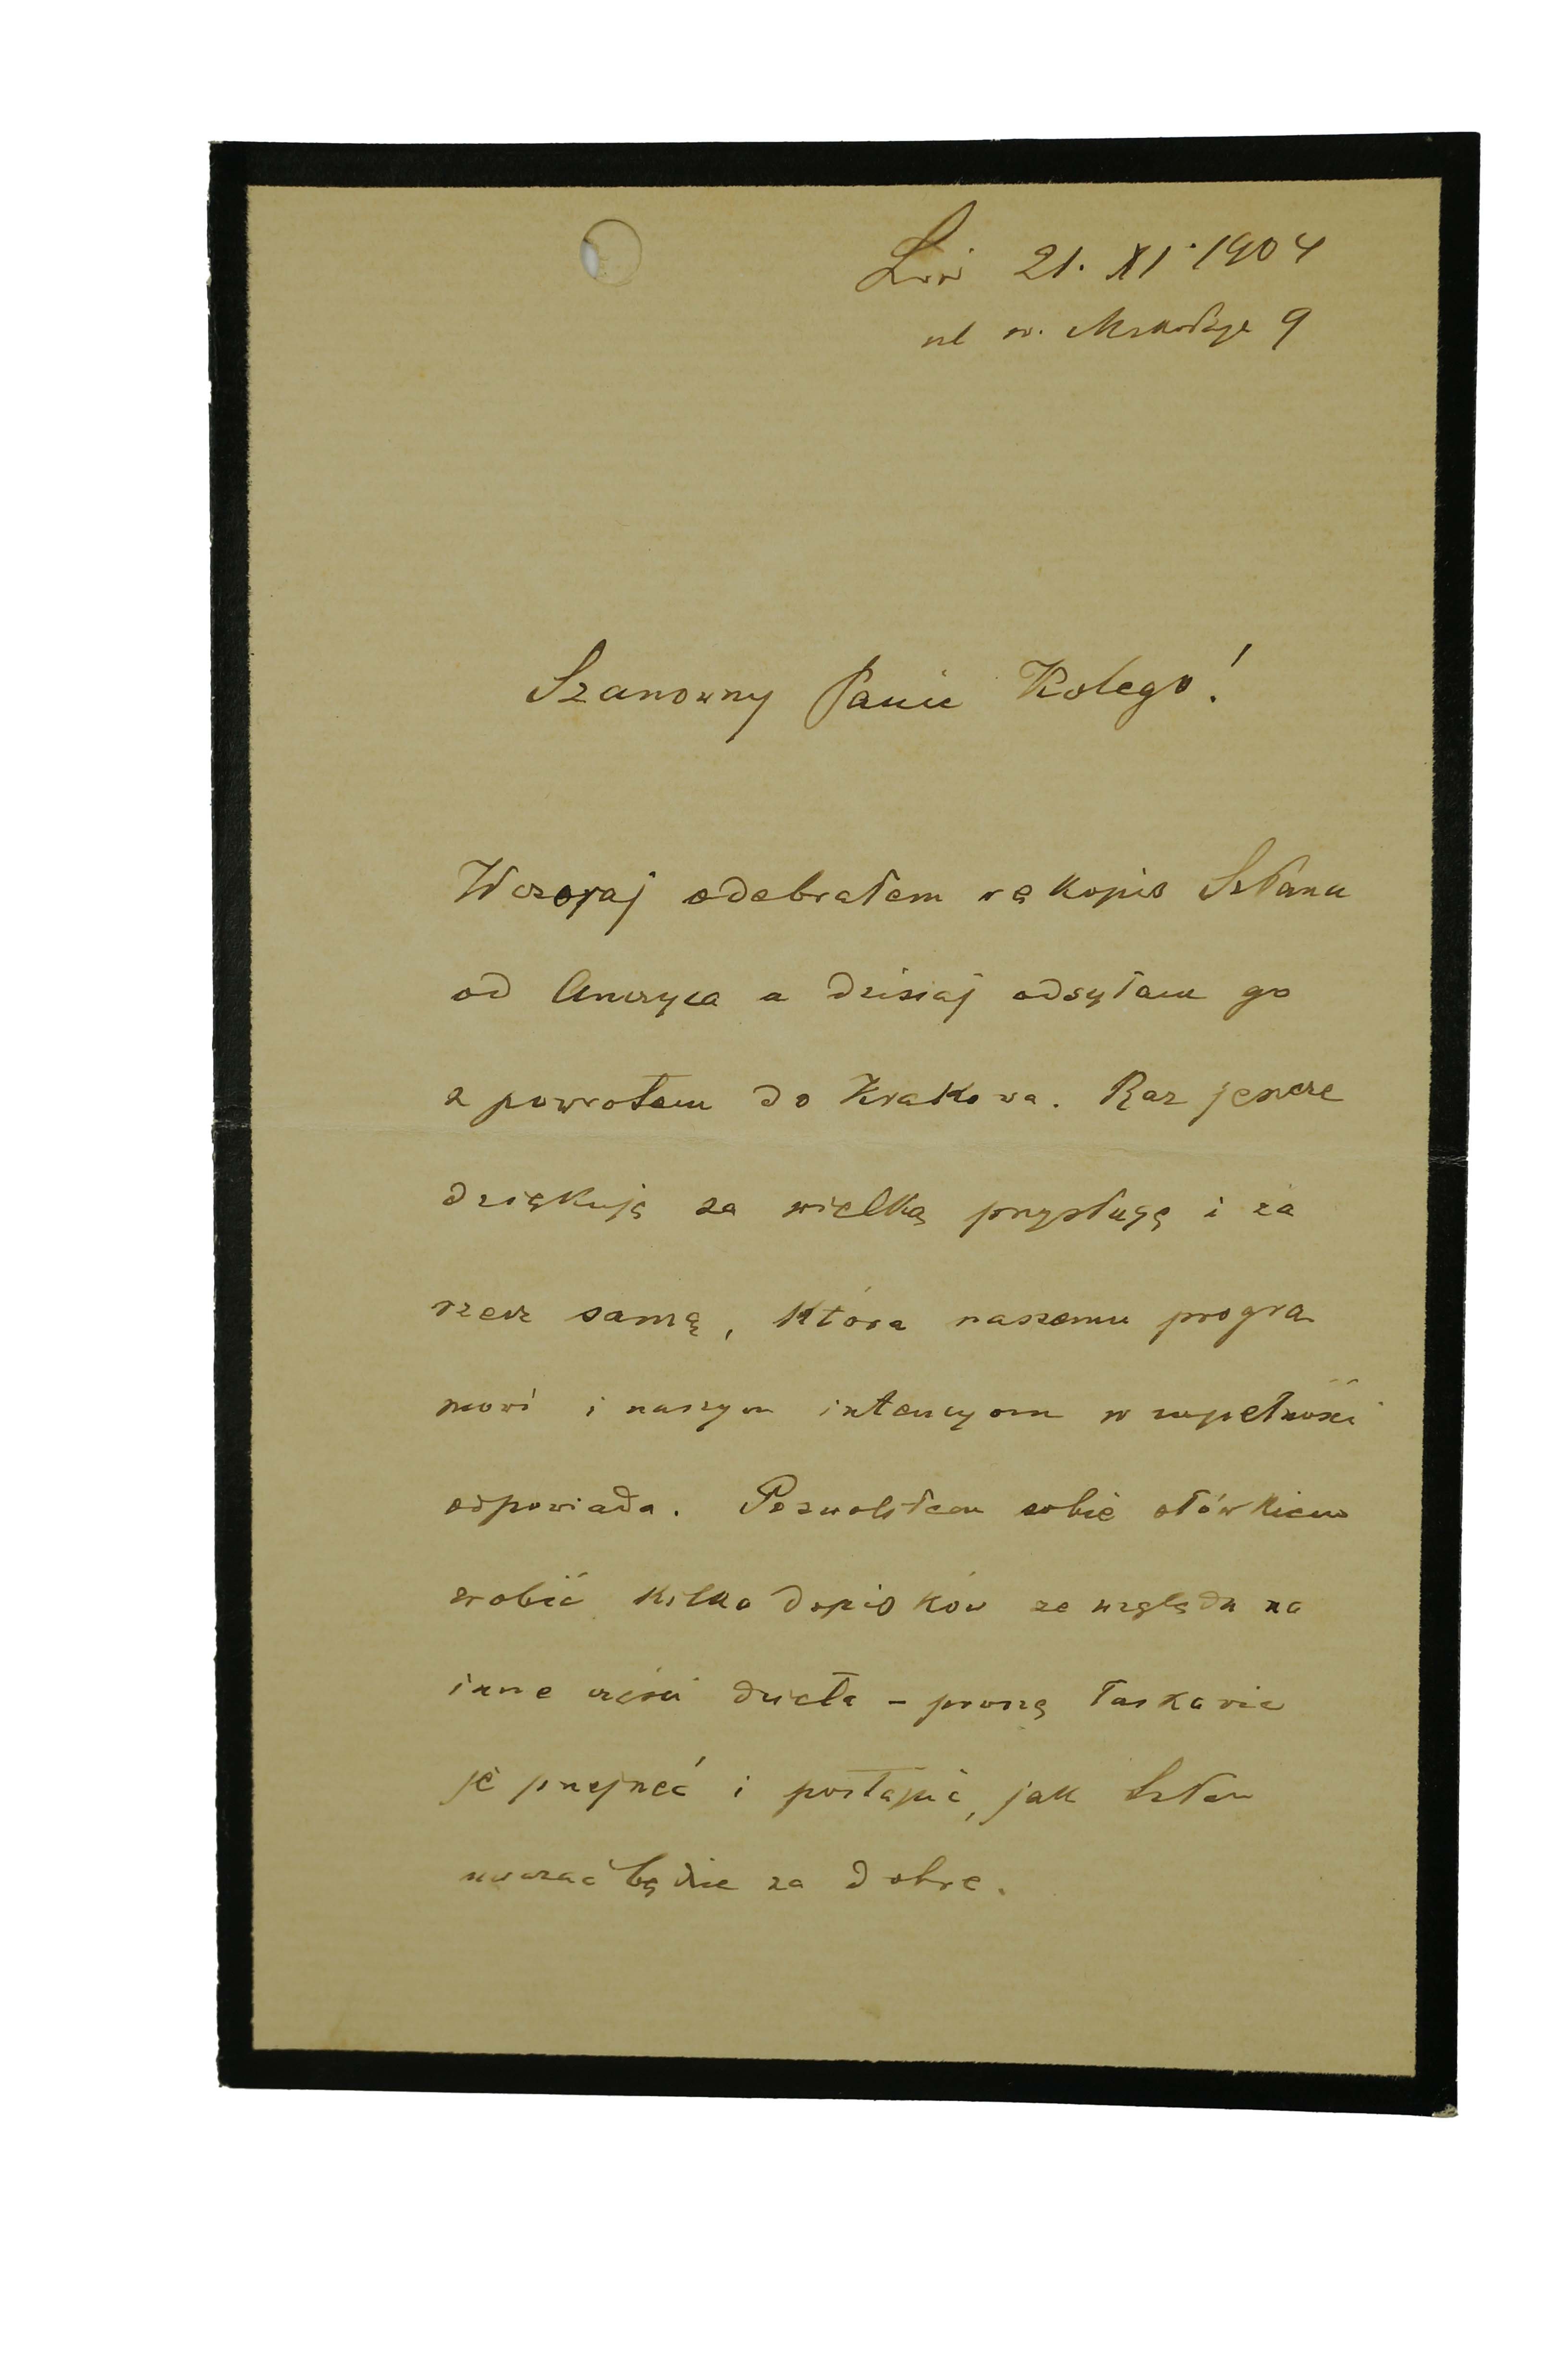 Lwów 21. XI. 1904
ul św. Mikołaja 9
Szanowny Panie Kolego!
Wczoraj odebrałem rękopis SzPana
od Anczyca a dzisiaj odsyłam go
z powrotem do Krakowa. Raz jeszcze
dziękuję za wielką przysługę i za
rzecz samą, która naszemu progra
mowi i naszym intencyom w zupełności
odpowiada. Pozwoliłem sobie ołówkiem
zrobić kilka dopisków ze względu na
inne części dzieła - proszę łaskawie
je przejrzeć i postąpić, jak SzPan
uważać będzie za dobre.